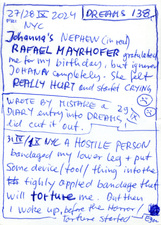 27/28 IX 2024 DREAMS 138
FM NYC
Johanna's NEPHEW (in real)
RAFAEL MAYRHOFER gratulated
me for my birthday, but ignored
JOHANA completely. She felt
REALLY HURT and started CRYING
WROTE BY MISTAKE a 29 IX
DIARY entry into DREAMS,
cut it out.
IX NYC A HOSTILE PERSON
bandaged my lower leg + put
some device/tool/thing into the
tighly applied bandage that
will torture me. But then
I woke up, before the horror/
torture started